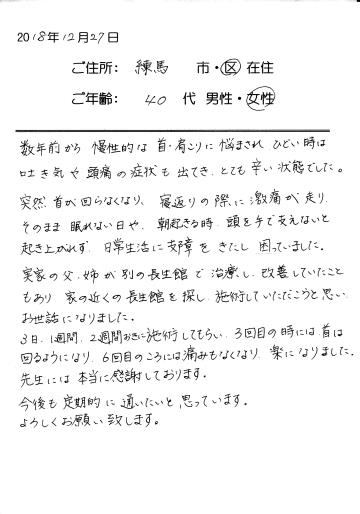 2018年12月27日
ご住所: 練馬 市・区 在住
ご年齢: 40 代 男性・女性
数年前から 慢性的な 首・肩こりに 悩まされ ひどい時は
吐き気や 頭痛の症状も 出てき、とても 辛い状態でした。
突然 首が回らなくなり、寝返りの際に 激痛が走り、
そのまま 眠れない日や、朝起きる時、頭を手で支えないと
起き上がれず、日常生活に 支障を きたし 困っていました。
実家の父、姉が 別の長生館で 治療し、改善していたこと
もあり 家の近くの 長生館を 探し、施術していただこうと思い、
お世話になりました。
3日、1週間、2週間おきに施術してもらい、3回目の時には首は
回るようになり、6回目のころには痛みもなくなり、楽になりました。
先生には 本当に感謝しております。
今後も 定期的に 通いたいと 思っています。
よろしくお願い致します。